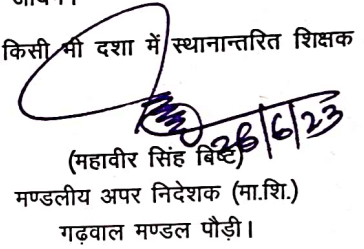 जायेंगे।
किसी भी दशा में स्थानान्तरित शिक्षक
26/6/23
(महावीर सिंह बिष्ट)
मण्डलीय अपर निदेशक (मा.शि.)
गढ़वाल मण्डल पौड़ी।